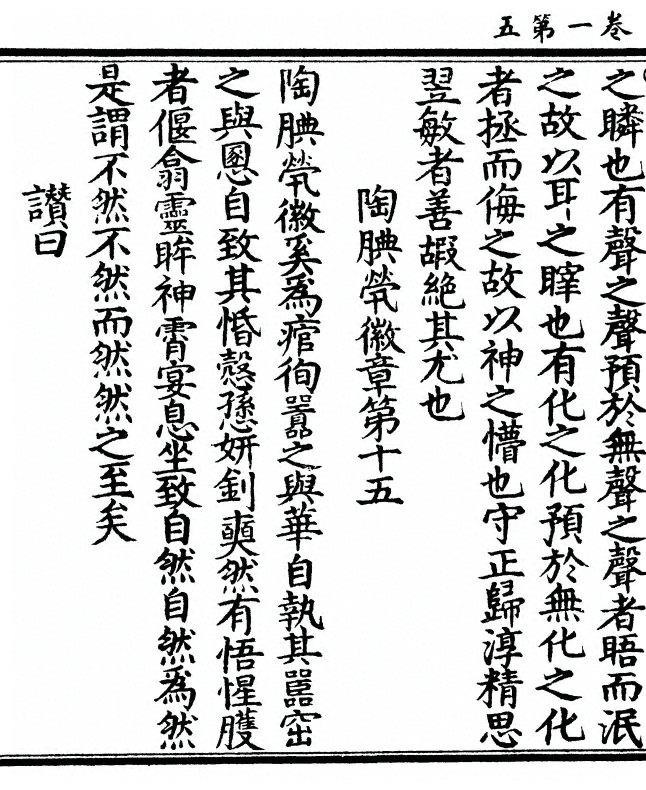 卷一第五
之瞵也有聲之聲預於無聲之聲者晤而泯
之故以耳之瞎也有化之化預於無化之化
者拯而侮之故以神之懵也守正歸淳精思
翌敏者善嘏絕其尤也
陶腆煢徽章第十五
陶腆煢徽奚為痯徇嚚之與華自執其嚚窋
之與慁自致其惛愨愻妍釗奭然有悟惺臒
者偃翕靈眸神霄宴息坐致自然自然為然
是謂不然不然而然然之至矣
讚曰